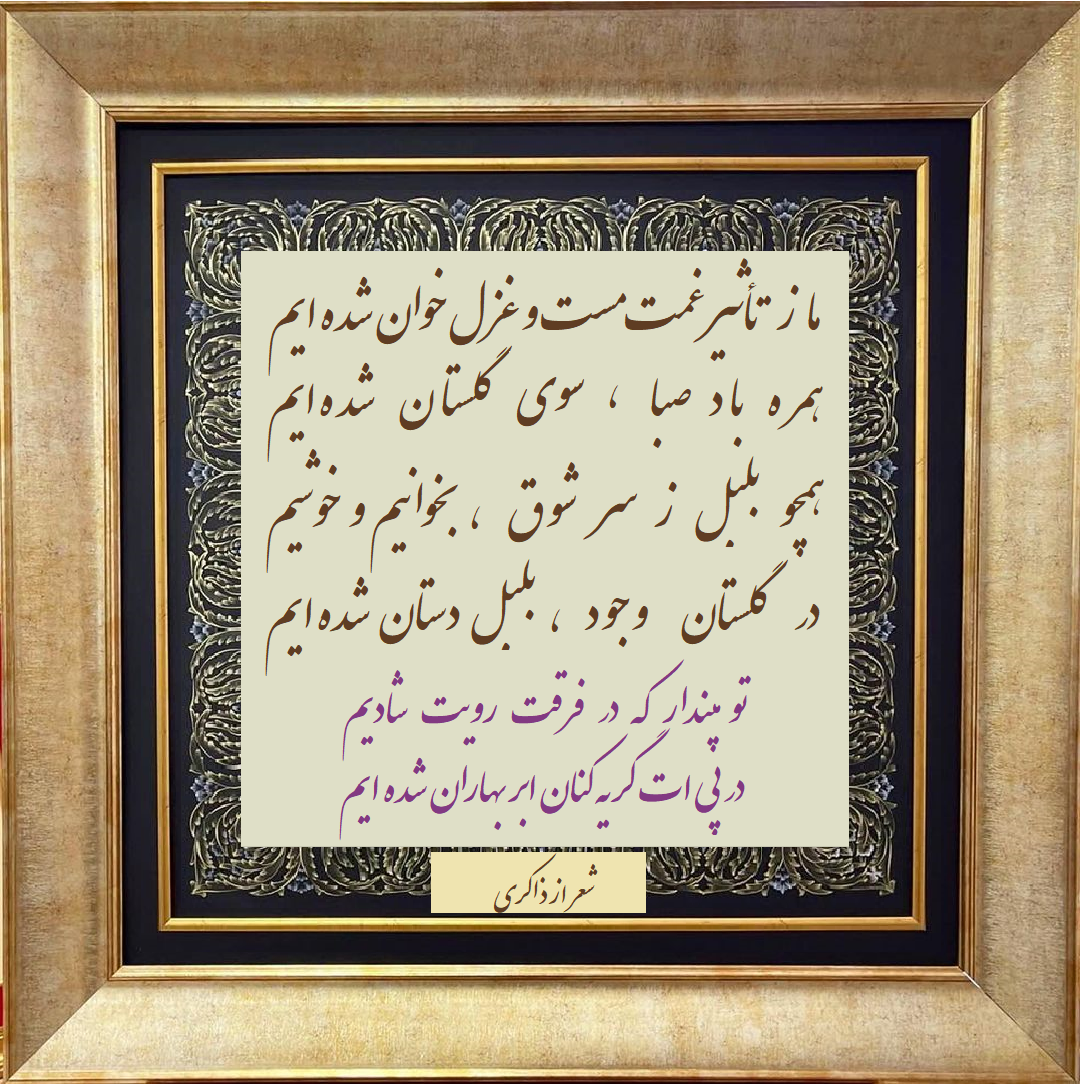 ما ز تأثیر غمت مست و غزل خوان شده ایم
همره باد صبا ، سوی گلستان شده ایم
همچو بلبل ز سر شوق ، بخوانیم و خوشیم
در گلستان وجود ، بلبل دستان شده ایم
تو مپندار که در فرقت رویت شادیم
در پی ات گریه کنان ابر بهاران شده ایم
شعر از ذاکری